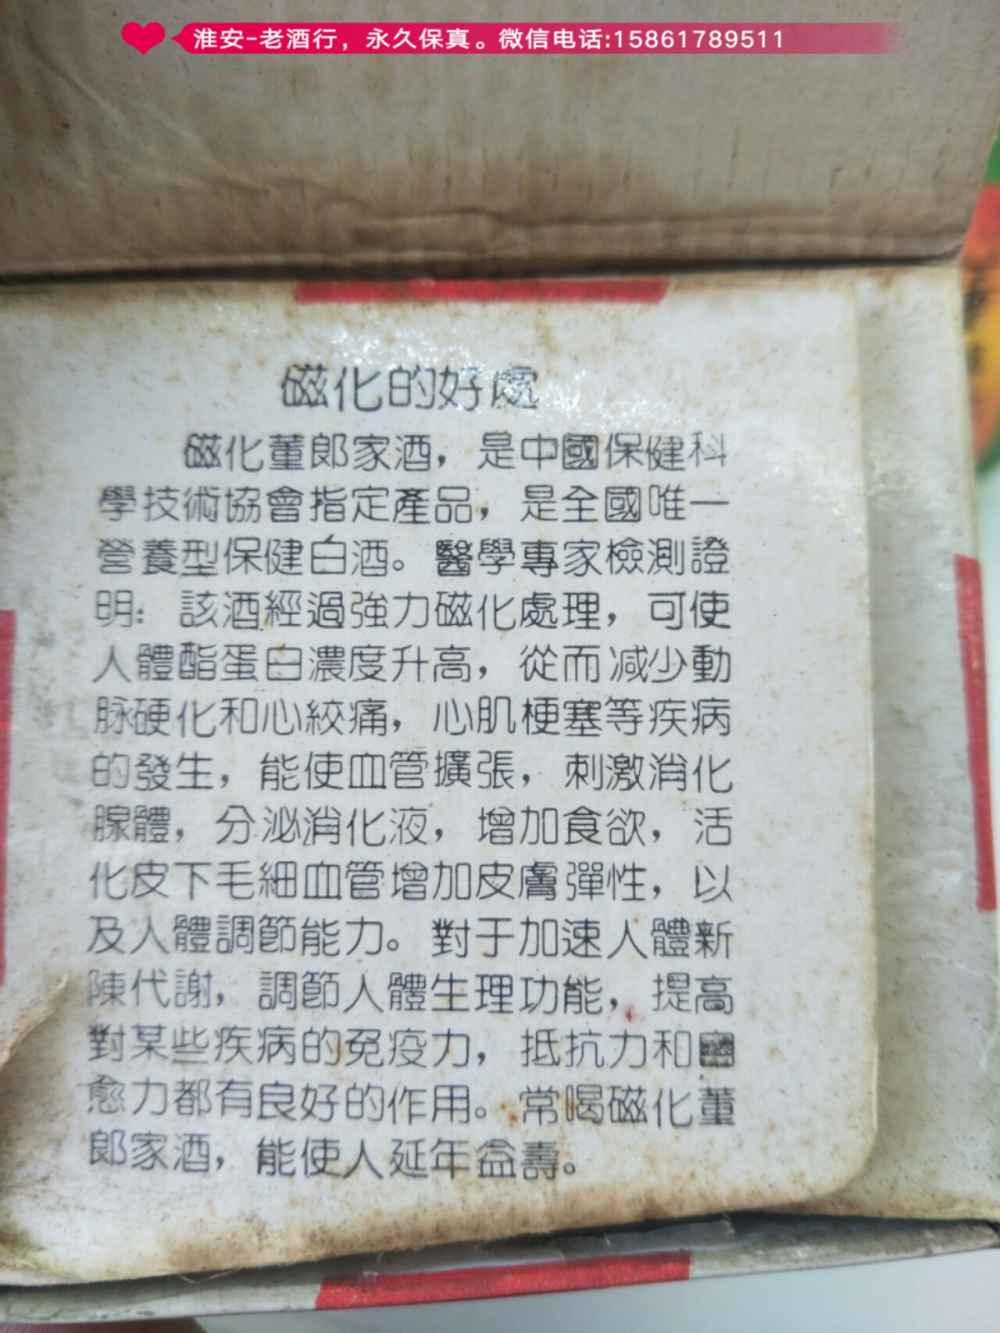 淮安-老酒行，永久保真。微信电话:15861789511
磁化的好處
磁化董郎家酒，是中國保健科
學技術協會指定產品，是全國唯一
營養型保健白酒。醫學專家檢測證
明：該酒經過強力磁化處理，可使
人體酯蛋白濃度升高，從而減少動
脉硬化和心絞痛，心肌梗塞等疾病
的發生，能使血管擴張，刺激消化
腺體，分泌消化液，增加食欲，活
化皮下毛細血管增加皮膚彈性，以
及人體調節能力。對于加速人體新
陳代謝，調節人體生理功能，提高
對某些疾病的免疫力，抵抗力和
愈力都有良好的作用。常喝磁化董
郎家酒，能使人延年益壽。